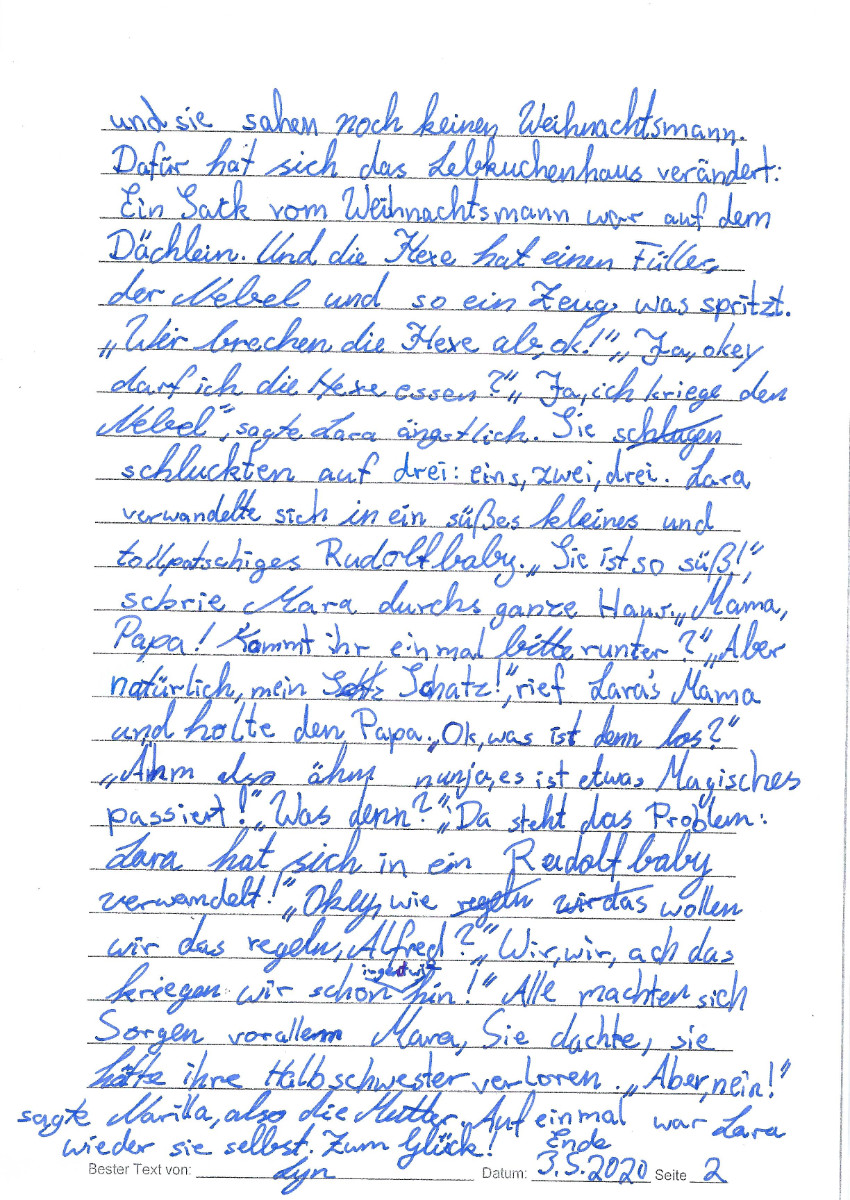 und sie sahen noch keinen Weihnachtsmann.
Dafür hat sich das Lebkuchenhaus verändert:
Ein Sack vom Weihnachtsmann war auf dem
Dächlein. Und die Hexe hat einen Füller,
der Nebel und so ein Zeug, was spritzt.
„Wir brechen die Hexe ab, ok!“ „Ja, okey
darf ich die Hexe essen?“ „Ja, ich kriege den
Nebel“, sagte Lara ängstlich. Sie schlugen
schluckten auf drei: eins, zwei, drei. Lara
verwandelte sich in ein süßes kleines und
tollpatschiges Rudolfbaby. „Sie ist so süß!“,
schrie Mara durchs ganze Haus. „Mama,
Papa! Kommt ihr einmal bitte runter?“ „Aber
natürlich, mein Schatz!“, rief Lara's Mama
und holte den Papa. „Ok, was ist denn los?“
„Ähm also ähm nunja, es ist etwas Magisches
passiert!“ „Was denn?“ „Da steht das Problem:
Lara hat sich in ein Rudolfbaby
verwandelt!“ „Okey, wie regeln wir das wollen
wir das regeln, Alfred?“ „Wir, wir, ach das
kriegen wir schon irgentwie hin!“ Alle machten sich
Sorgen vorallem Mara, Sie dachte, sie
hätte ihre Halbschwester verloren. „Aber, nein!“
sagte Marilla, also die Mutter. Auf einmal war Lara
wieder sie selbst. Zum Glück! Ende
Bester Text von: Lyn Datum: 3.5.2020 Seite 2